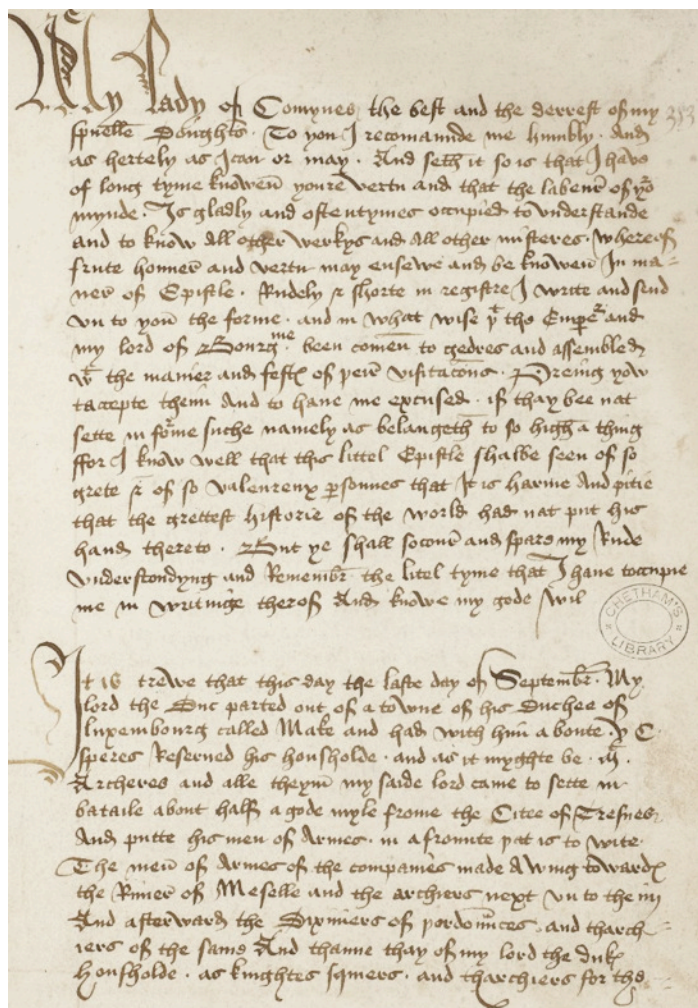 My Lady of Comynes the best and the derrest of my
spuelle Doughter. To you I recomaunde me humbly. And
as hertely as I can or may. And seth it so is that I have
of long tyme knowen youre vertu and that the labeur of yor
mynde. Is gladly and oftentymes occupied to understande
and to know All other werkys and All other misteres. Whereof
frute honneur and vertu may ensewe and be knowen In ma=
ner of Epistle. Rudely & shorte in registre I write and send
un to you the forme. and in what wise yt the Emperor and
my lord of Bourgme been comen to gedres and assembled
wt the manier and feste of peir visitacons. Preing yow
taccepte theim And to have me excused. if thay bee nat
sette in forme suche namely as belangeth to so high a thing
ffor I know well that this littel Epistle shalbe seen of so
grete & of so valeureux personnes that It is harme And pitie
that the grettest historie of the world had nat put his
hand thereto. But ye shall socour and spare my Rude
understondyng and Remembr the litel tyme that I have toccupie
me in writinge therof And knowe my gode wil
353
CHETHAM'S LIBRARY
It is trewe that this day the laste day of Septembr. My
lord the Duc parted out of a towne of his Duchee of
luxembourg called Make and had with him aboute. C
speres Reserved his housholde. and as it myghte be.
Archeres and alle theym my saide lord came to sette in
bataile about half a gode myle frome the Citee of Tresves
And putte his men of Armes. in a frounte pat is to wite
The men of Armes of the companies made A wing toward
the River of Meselle and the archiers next un to them
And afterward the Dixniers of pordonnces. and tharch=
iers of the same And thanne thay of my lord the duk
housholde. as knightes squiers. and tharchiers for the